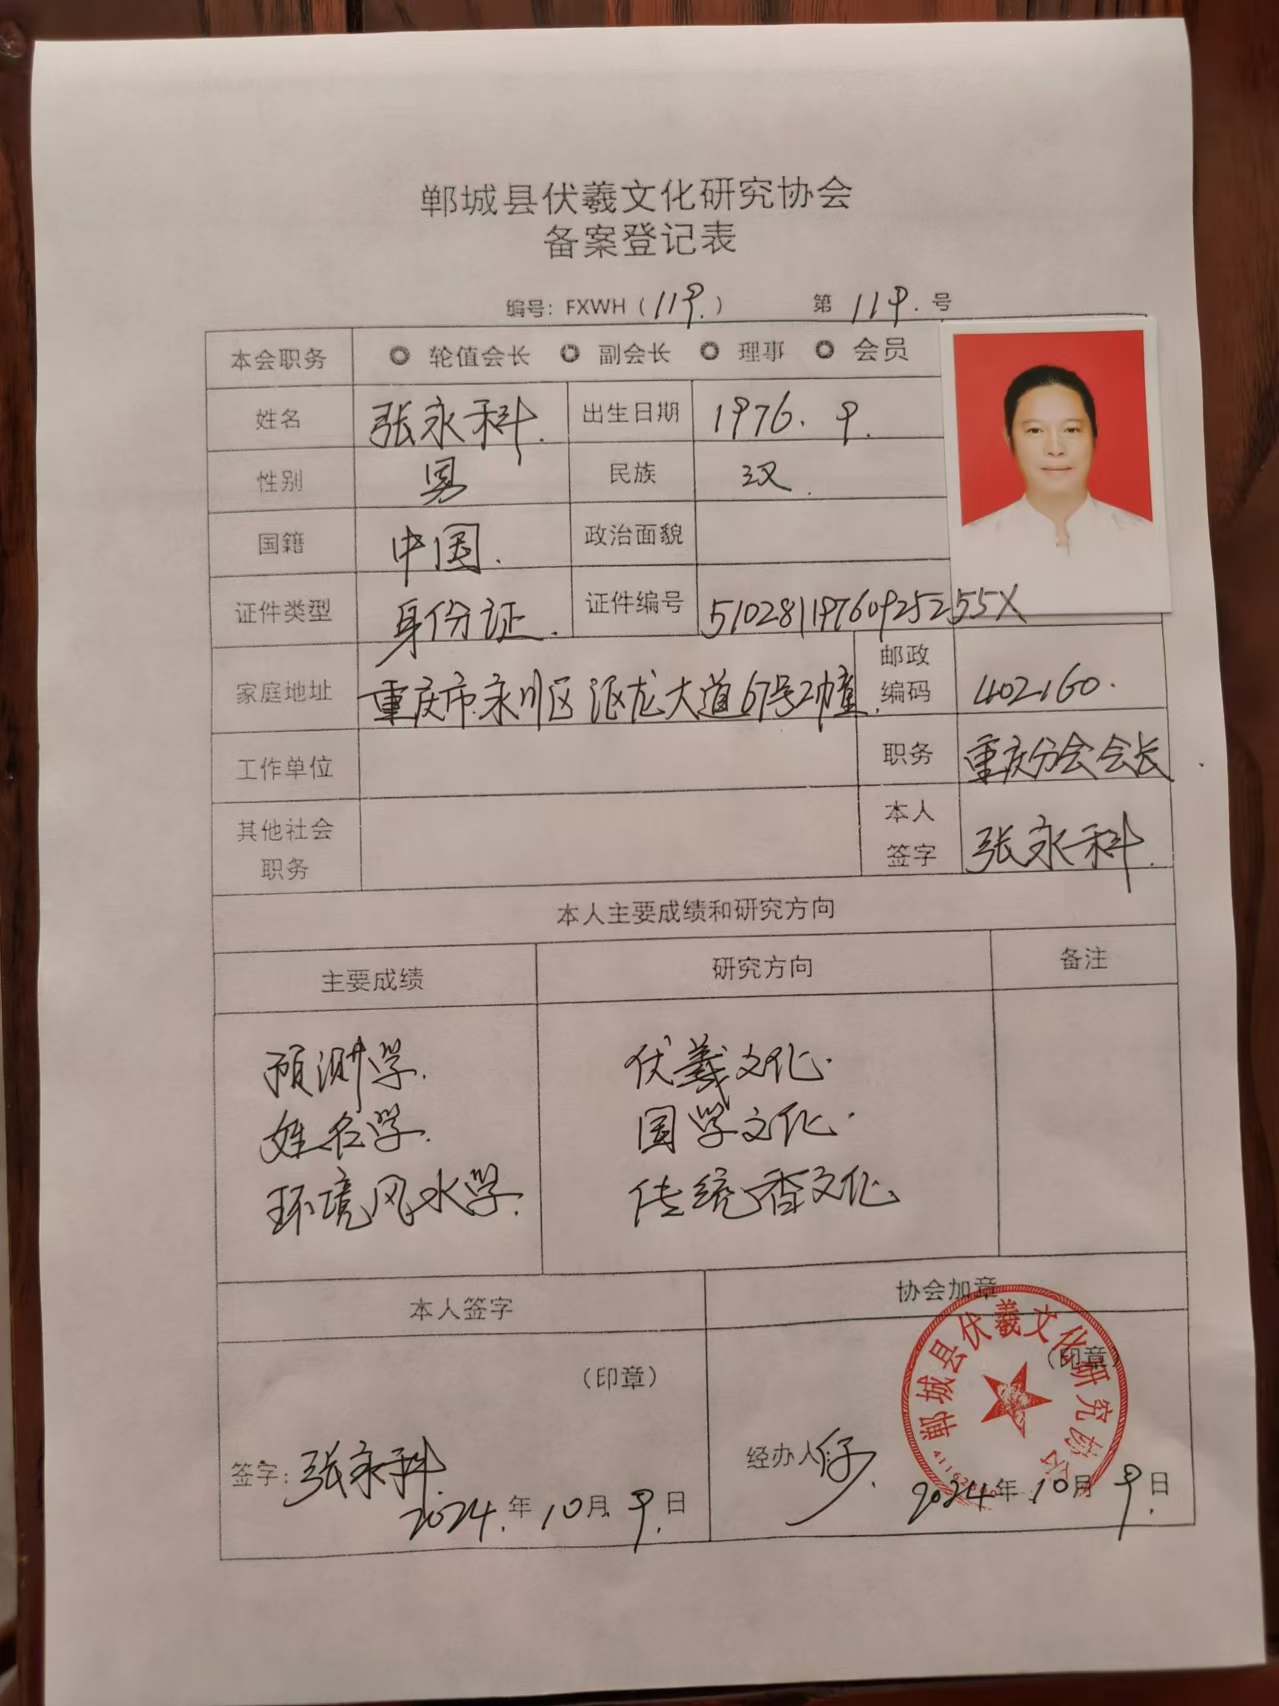 郸城县伏羲文化研究协会
备案登记表
编号：FXWH（119.） 第 119. 号
本会职务 轮值会长 副会长 理事 会员
姓名 张永科. 出生日期 1976. 9.
性别 男 民族 汉.
国籍 中国. 政治面貌
证件类型 身份证. 证件编号 51028119760925255X
家庭地址 重庆市永川区汇龙大道67号2幢. 邮政编码 402160.
工作单位 职务 重庆分会会长
其他社会职务 本人签字 张永科.
本人主要成绩和研究方向
主要成绩 研究方向 备注
预测学. 伏羲文化.
姓名学. 国学文化.
环境风水学. 传统香文化
本人签字 协会加章
（印章） （印章）
签字：张永科 经办人
2024.年10月9.日 2024年10月9.日
郸城县伏羲文化研究协会